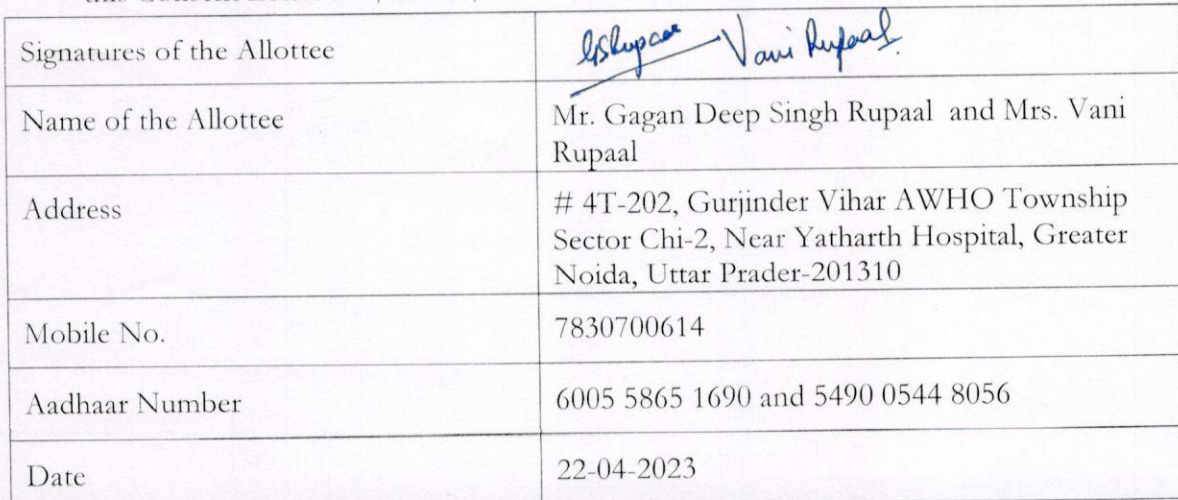 Signatures of the Allottee
GSRupaal Vani Rupaal
Name of the Allottee
Mr. Gagan Deep Singh Rupaal and Mrs. Vani
Rupaal
Address
# 4T-202, Gurjinder Vihar AWHO Township
Sector Chi-2, Near Yatharth Hospital, Greater
Noida, Uttar Prader-201310
Mobile No.
7830700614
Aadhaar Number
6005 5865 1690 and 5490 0544 8056
Date
22-04-2023